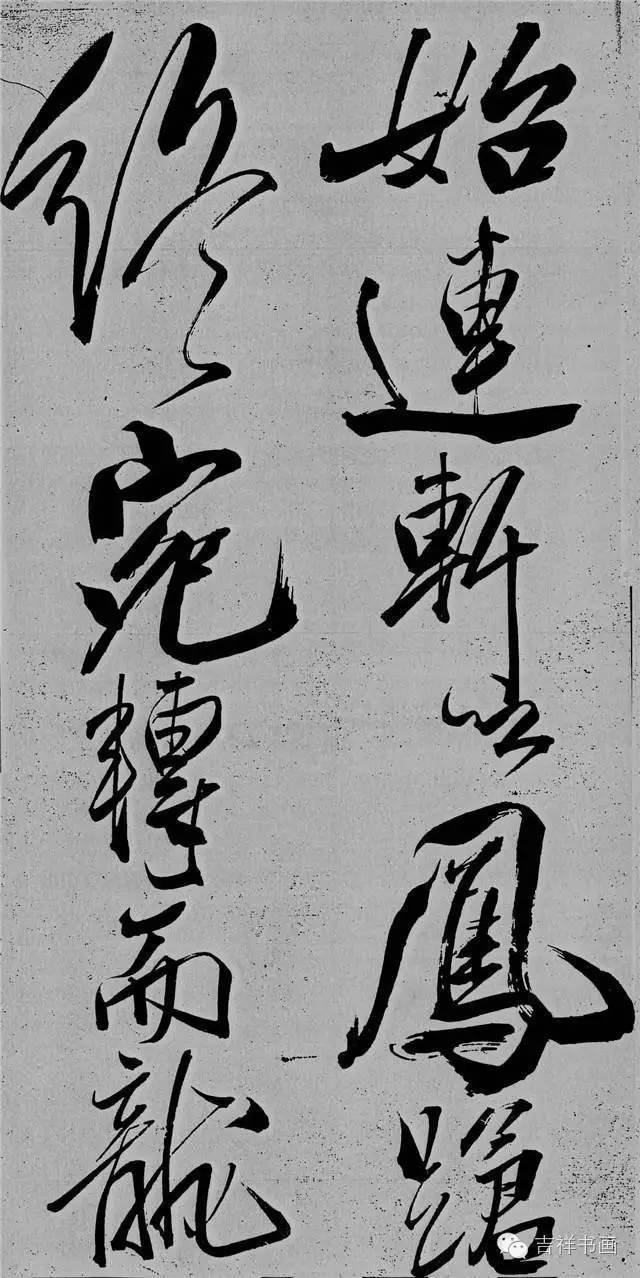 始連軒以鳳蹌
終宛轉而龍
吉祥书画